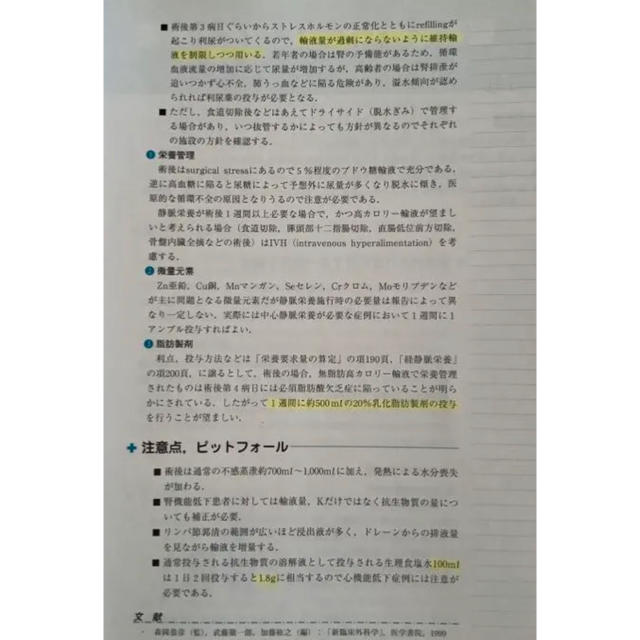 ■ 術後第3病日ぐらいからストレスホルモンの正常化とともにrefillingが
起こり利尿がついてくるので，輸液量が過剰にならないように維持輸
液を制限しつつ用いる．若年者の場合は腎の予備能があるため，循環
血液流量の増加に応じて尿量が増加するが，高齢者の場合は腎排泄が
追いつかず心不全，肺うっ血などに陥る危険があり，溢水傾向が認め
られれば利尿薬の投与が必要となる．
■ ただし，食道切除後などはあえてドライサイド（脱水ぎみ）で管理す
る場合があり，いつ抜管するかによっても方針が異なるのでそれぞれ
の施設の方針を確認する．
❶ 栄養管理
術後はsurgical stressにあるので5％程度のブドウ糖輸液で充分である．
逆に高血糖に陥ると尿糖によって予想外に尿量が多くなり脱水に傾き，医
原的な循環不全の原因となりうるので注意が必要である．
静脈栄養が術後1週間以上必要な場合で，かつ高カロリー輸液が望まし
いと考えられる場合（食道切除，膵頭部十二指腸切除，直腸低位前方切除，
骨盤内臓全摘などの術後）はIVH（intravenous hyperalimentation）を考
慮する．
❷ 微量元素
Zn亜鉛，Cu銅，Mnマンガン，Seセレン，Crクロム，Moモリブデンなど
が主に問題となる微量元素だが静脈栄養施行時の必要量は報告によって異
なり一定しない．実際には中心静脈栄養が必要な症例において1週間に1
アンプル投与すればよい．
❸ 脂肪製剤
利点，投与方法などは「栄養要求量の算定」の項190頁，「経静脈栄養」
の項200頁，に譲るとして，術後の場合，無脂肪高カロリー輸液で栄養管理
されたものは術後第4病日には必須脂肪酸欠乏症に陥っていることが明ら
かにされている．したがって1週間に約500mlの20%乳化脂肪製剤の投与
を行うことが望ましい．
✚ 注意点，ピットフォール
■ 術後は通常の不感蒸泄約700ml〜1,000mlに加え，発熱による水分喪失
が加わる．
■ 腎機能低下患者に対しては輸液量，Kだけではなく抗生物質の量につ
いても補正が必要．
■ リンパ節郭清の範囲が広いほど浸出液が多く，ドレーンからの排液量
を見ながら輸液を増量する．
■ 通常投与される抗生物質の溶解液として投与される生理食塩水100ml
は1日2回投与すると1.8gに相当するので心機能低下症例には注意が
必要である．
文 献
・ 森岡恭彦（監），武藤徹一郎，加藤 之（編）：「新臨床外科学」，医学書院，1999